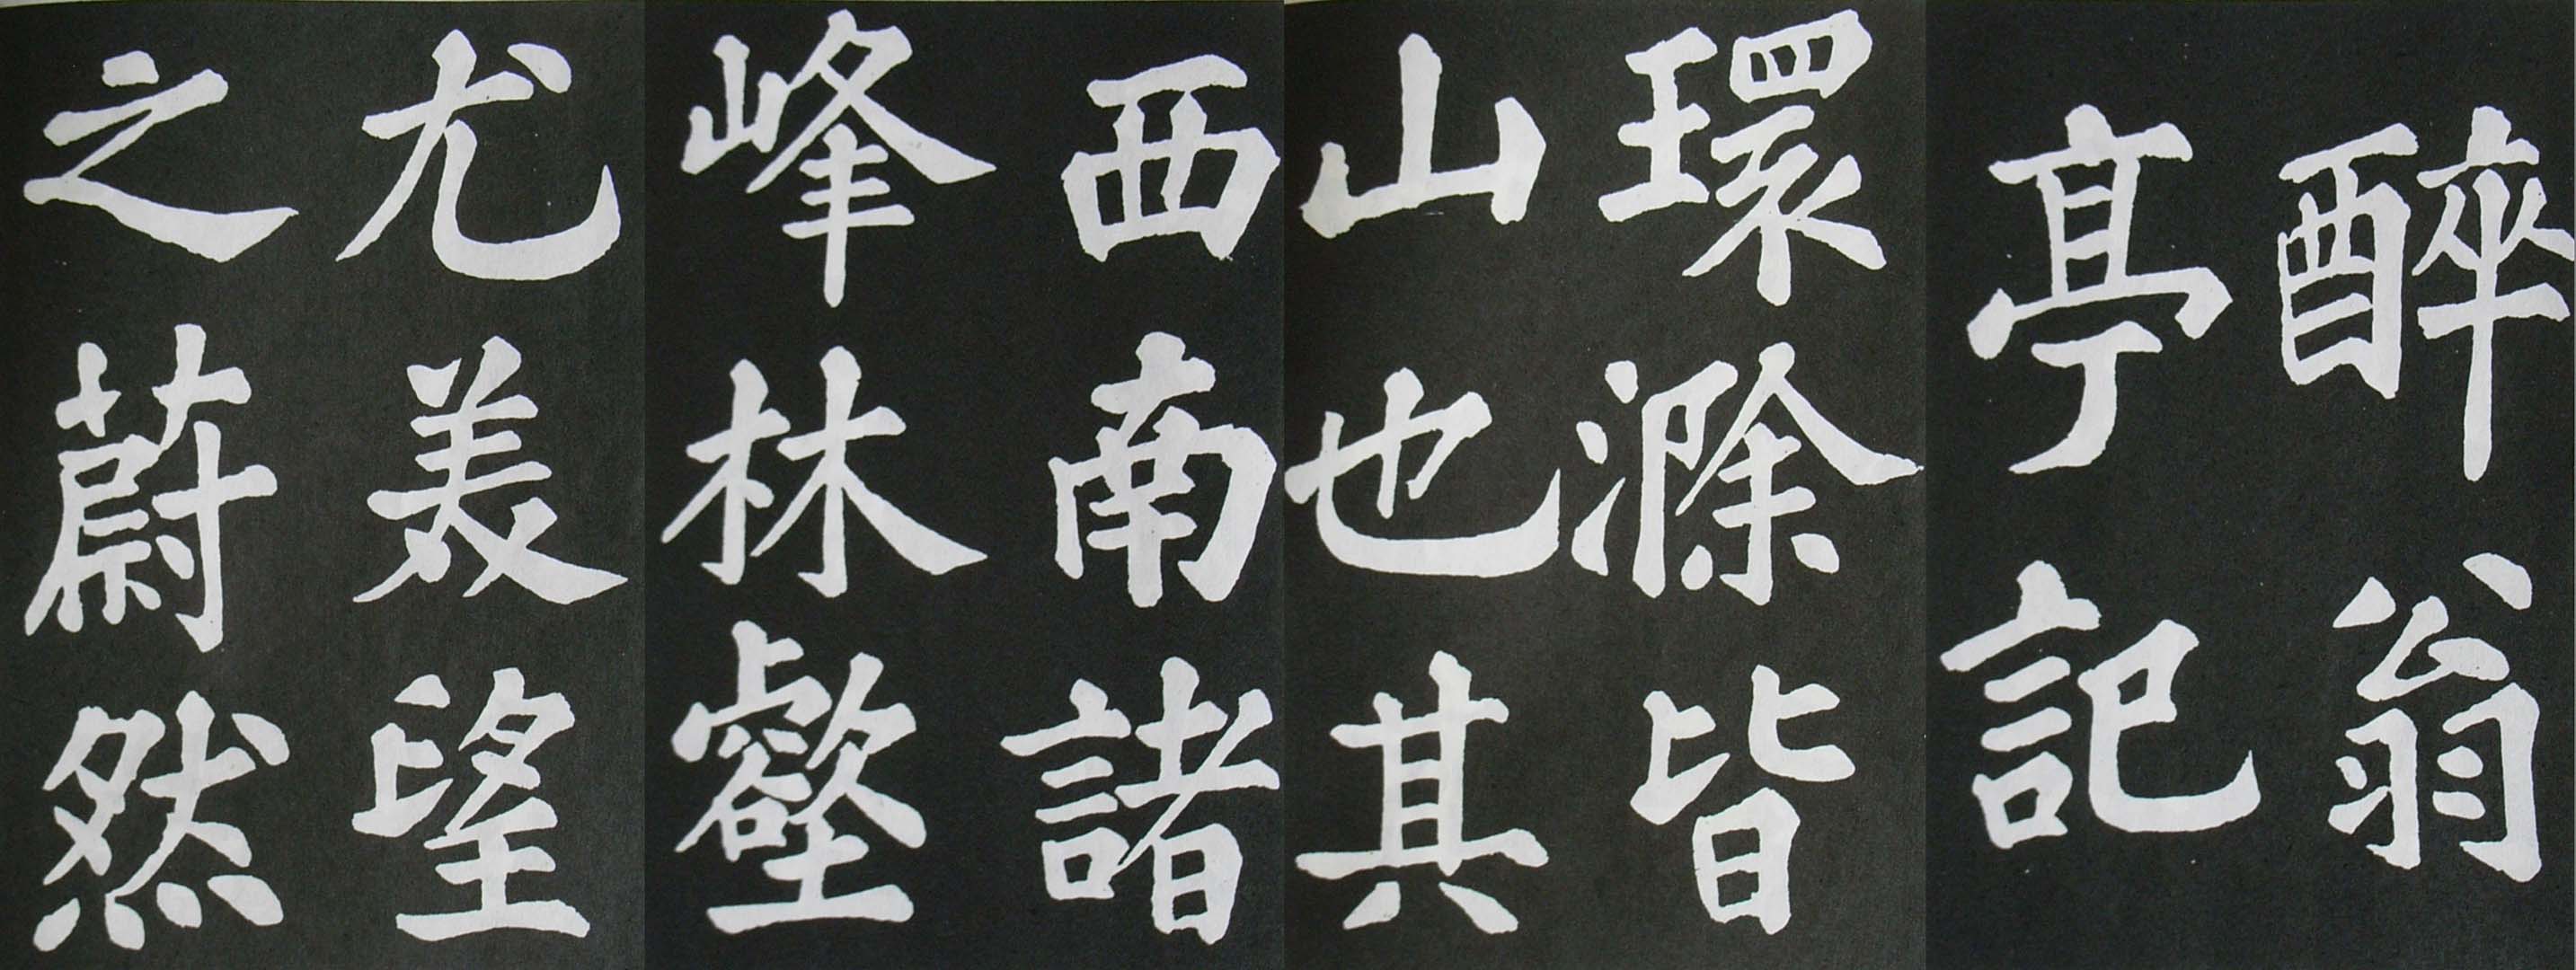 醉翁
亭記
環滁皆
山也其
西南諸
峰林壑
尤美望
之蔚然